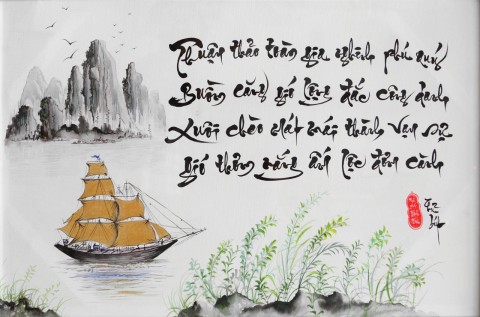 Thuận thảo toàn gia nghinh phú quý
Buồm căng gió lộng đắc công danh
Xuôi chèo mát mái thành vạn sự
Gió thuận nắng ấm lộc đơm cành